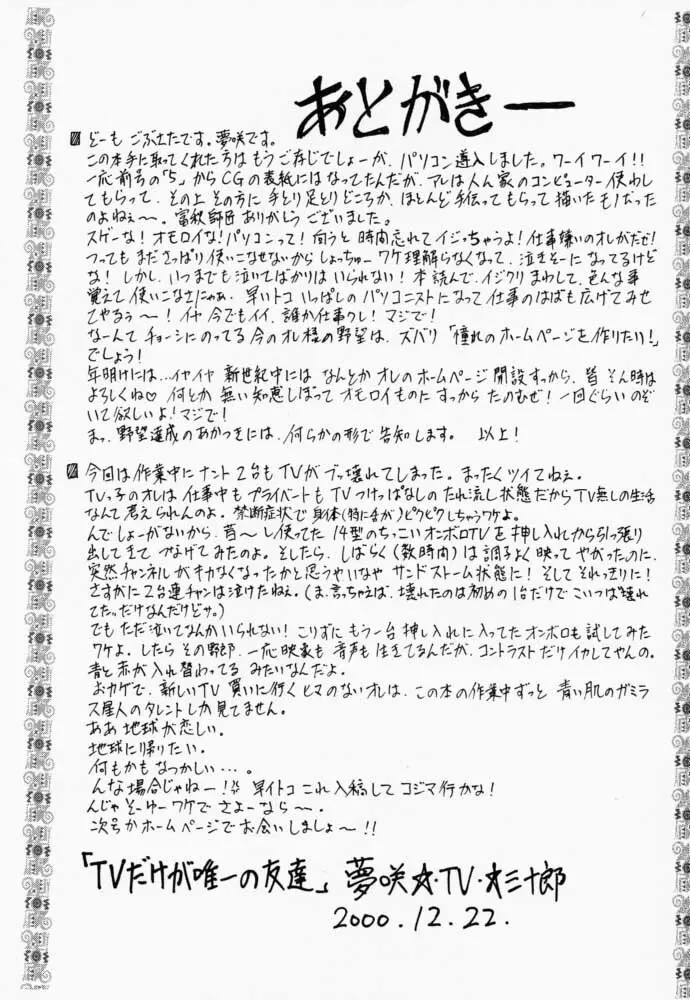 あとがきー
どーも ごぶさたです。夢咲です。
この本手に取ってくれた方は もうご存じでしょーが、パソコン導入しました。ワーイワーイ!!
一応前号の「5」からCGの表紙にはなってたんだが、アレは人ん家のコンピューター使わし
てもらって、その上その方に手とり足とりどころか、ほとんど手伝ってもらって描いたモノだった
のよねぇ〜。富秋師匠ありがとうございました。
スゲーな!オモロイな!パソコンって!向うと時間忘れてイジっちゃうよ!仕事嫌いのオレがだぜ!
つってもまださっぱり使いこなせないからしょっちゅーワケ理解らなくなって、泣きそーになってるけど
な!しかし、いつまでも泣いてばかりはいられない!本読んで、イジクリまわして、色んな事
覚えて使いこなさにゃぁ、早いトコいっぱしのパソコニストになって仕事のはばも広げてみせ
てやるぅ〜!イヤ今でもイイ、誰か仕事クレ!マジで!
なーんてチョーシにのってる今のオレ様の野望は、ズバリ「憧れのホームページを作りたい!」
でしょう!
年明けには…イヤイヤ新世紀中にはなんとかオレのホームページ開設すっから、皆そん時は
よろしくね♡何とか無い知恵しぼってオモロイものにすっからたのむぜ!一回ぐらいのぞ
いて欲しいよ!マジで!
まっ、野望達成のあかつきには、何らかの形で告知します。 以上!
今回は作業中にナント2台もTVがブッ壊れてしまった。まったくツイてねぇ。
TVっ子のオレは仕事中もプライベートもTVつけっぱなしのたれ流し状態だからTV無しの生活
なんて考えられんのよ。禁断症状で身体(特に舌が)ピクピクしちゃうワケよ。
んでしょーがないから、昔〜し使ってた14型のちっこいオンボロTVを押し入れから引っ張り
出してきてつなげてみたのよ。そしたら、しばらく(数時間)は調子よく映ってやがったのに、
突然チャンネルがキカなくなったかと思うやいなやサンドストーム状態に!そしてそれっきりに!
さすがに2台連チャンは泣けたねぇ。(ま、言っちゃえば、壊れたのは初めの1台だけでこいつは"壊れ
てた"だけなんだけどサ。)
でもただ泣いてなんかいられない!こりずにもう一台押し入れに入ってたオンボロも試してみた
ワケよ。したらその野郎、一応映像も音声も生きてるんだが、コントラストだけイカレてやんの。
青と赤が入れ替わってるみたいなんだよ。
おカゲで、新しいTV買いに行くヒマのないオレは、この本の作業中ずっと青い肌のガミラ
ス星人のタレントしか見てません。
ああ地球が恋しい。
地球に帰りたい。
何もかもなつかしい…。
んな場合じゃねー!!早イトコこれ入稿してコジマ行かな!
んじゃそーゆーワケでさよーなら〜。
次号かホームページでお会いしましょ〜!!
「TVだけが唯一の友達」夢咲☆・TV・☆三十郎
2000.12.22.